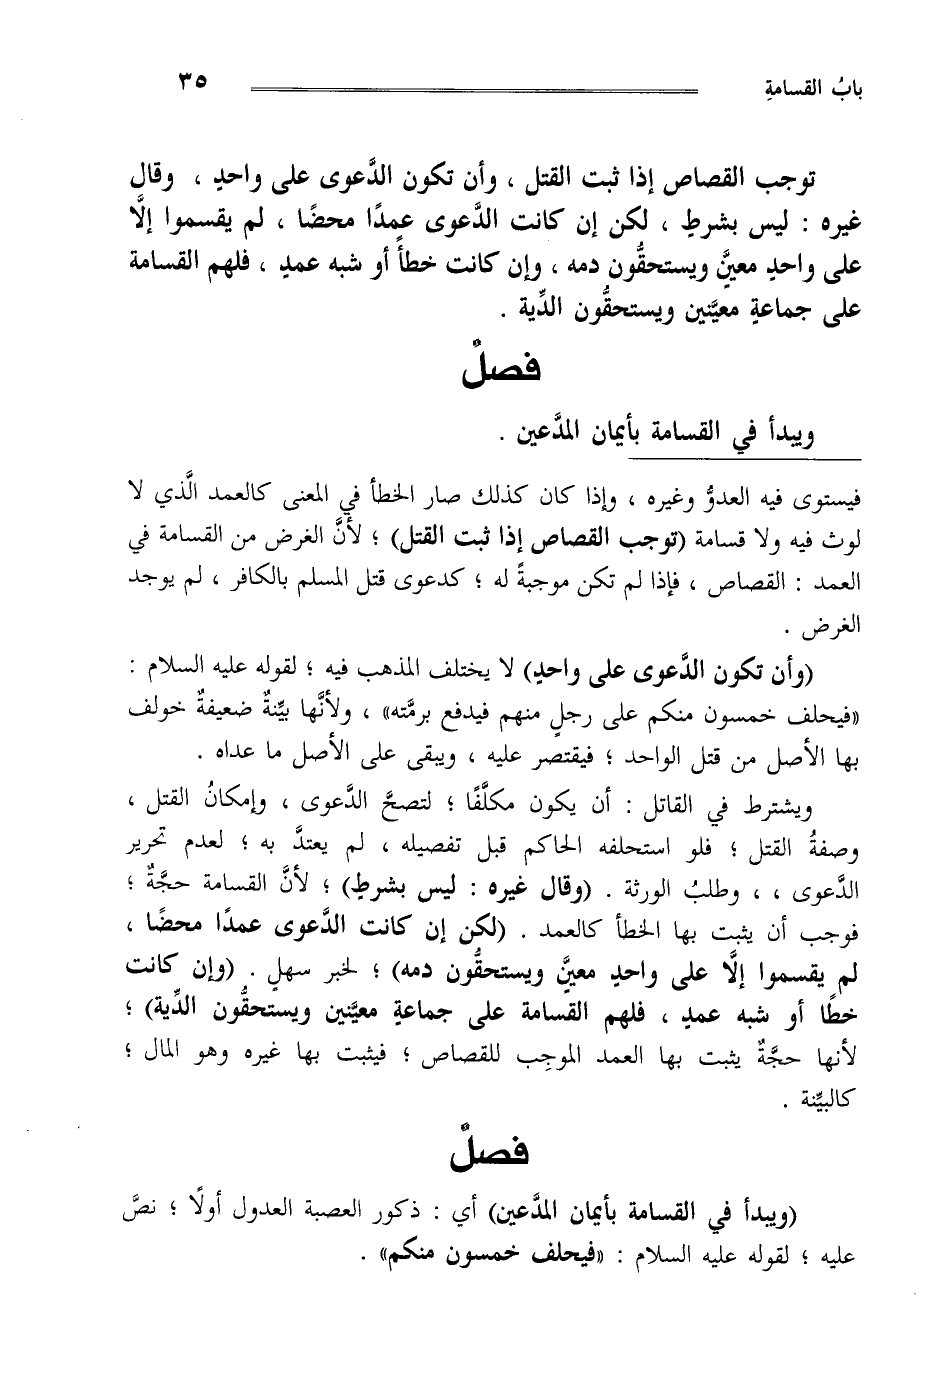 بابُ القسامةِ ٣٥
توجب القصاص إذا ثبت القتل ، وأن تكون الدَّعوى على واحدٍ ، وقال
غيره : ليس بشرطٍ ، لكن إن كانت الدَّعوى عمدًا محضًا ، لم يقسموا إلَّا
على واحدٍ معيَّنٍ ويستحقُّون دمه ، وإن كانت خطأً أو شبه عمدٍ ، فلهم القسامة
على جماعةٍ معيَّنين ويستحقُّون الدِّية .
فصلٌ
ويبدأ في القسامة بأيمان المدَّعين .
فيستوى فيه العدوُّ وغيره ، وإذا كان كذلك صار الخطأ في المعنى كالعمد الَّذي لا
لوث فيه ولا قسامة (توجب القصاص إذا ثبت القتل) ؛ لأنَّ الغرض من القسامة في
العمد : القصاص ، فإذا لم تكن موجبةً له ؛ كدعوى قتل المسلم بالكافر ، لم يوجد
الغرض .
(وأن تكون الدَّعوى على واحدٍ) لا يختلف المذهب فيه ؛ لقوله عليه السلام :
«فيحلف خمسون منكم على رجلٍ منهم فيدفع برمَّته» ، ولأنَّها بيِّنةٌ ضعيفةٌ خولف
بها الأصل من قتل الواحد ؛ فيقتصر عليه ، ويبقى على الأصل ما عداه .
ويشترط في القاتل : أن يكون مكلَّفًا ؛ لتصحَّ الدَّعوى ، وإمكانُ القتل ،
وصفةُ القتل ؛ فلو استحلفه الحاكم قبل تفصيله ، لم يعتدَّ به ؛ لعدم تحرير
الدَّعوى ، ، وطلبُ الورثة . (وقال غيره : ليس بشرطٍ) ؛ لأنَّ القسامة حجَّةٌ ؛
فوجب أن يثبت بها الخطأ كالعمد . (لكن إن كانت الدَّعوى عمدًا محضًا ،
لم يقسموا إلَّا على واحدٍ معيَّنٍ ويستحقُّون دمه) ؛ لخبر سهلٍ . (وإن كانت
خطًا أو شبه عمدٍ ، فلهم القسامة على جماعةٍ معيَّنين ويستحقُّون الدِّية) ؛
لأنها حجَّةٌ يثبت بها العمد الموجِب للقصاص ؛ فيثبت بها غيره وهو المال ؛
كالبيِّنة .
فصلٌ
(ويبدأ في القسامة بأيمان المدَّعين) أي : ذكور العصبة العدول أولًا ؛ نصَّ
عليه ؛ لقوله عليه السلام : «فيحلف خمسون منكم» .